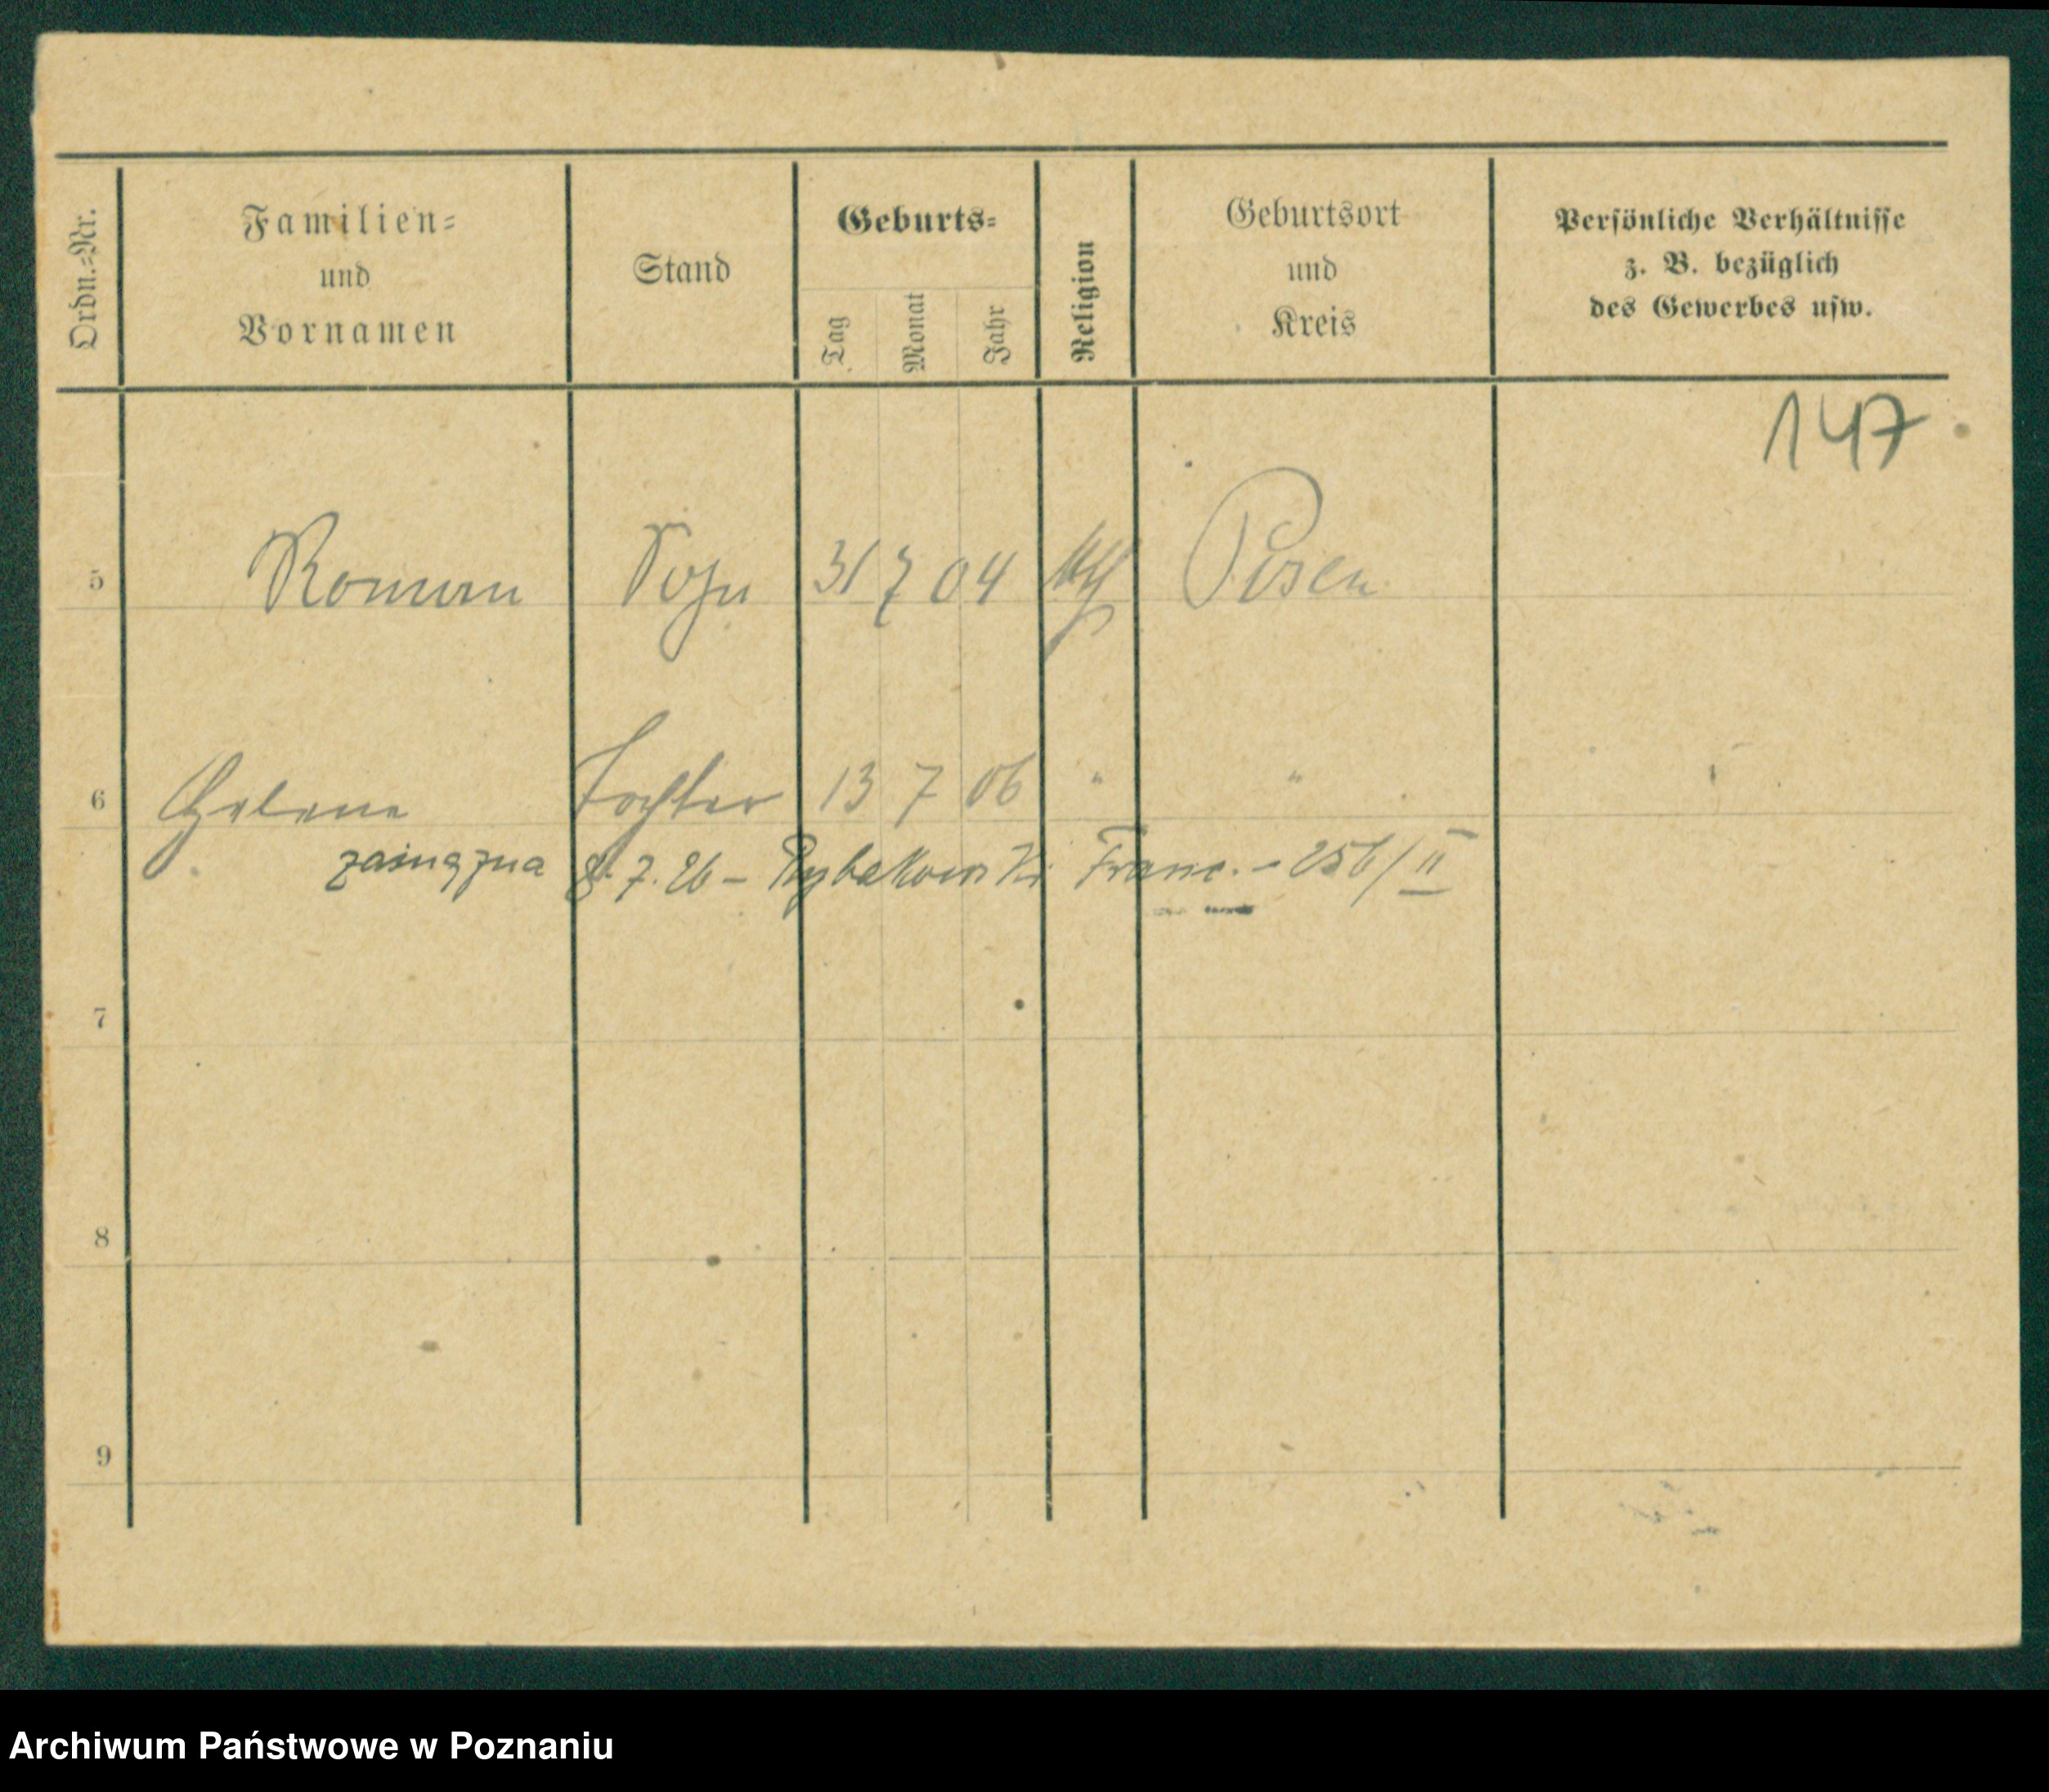 Ordn.-Nr.
Familien-
und
Vornamen
Stand
Geburts-
Tag
Monat
Jahr
Religion
Geburtsort
und
Kreis
Persönliche Verhältnisse
z. B. bezüglich
des Gewerbes usw.
147
5 Roman Sohn 31 7 04 kth Posen
6 Helene Tochter 13 7 06 " "
zamężna 8.7.26 – Rybakowski Franc. – 256/II
7
8
9
Archiwum Państwowe w Poznaniu